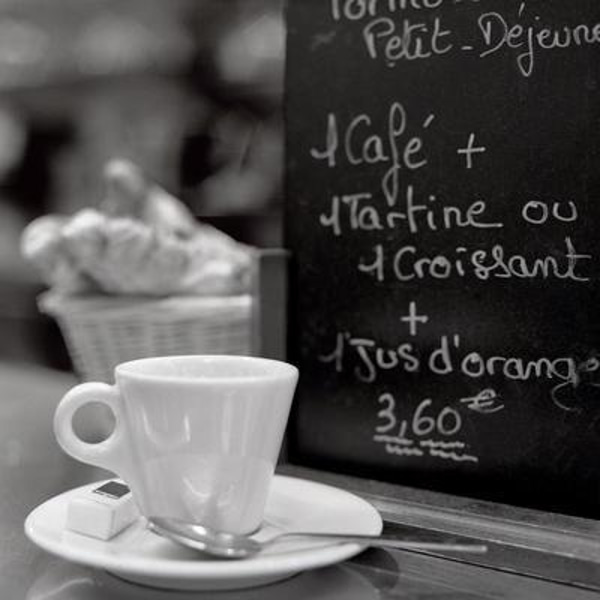 Petit-Déjeune
1 Café +
1 Tartine ou
1 Croissant
+
1 Jus d'orang
3,60 €